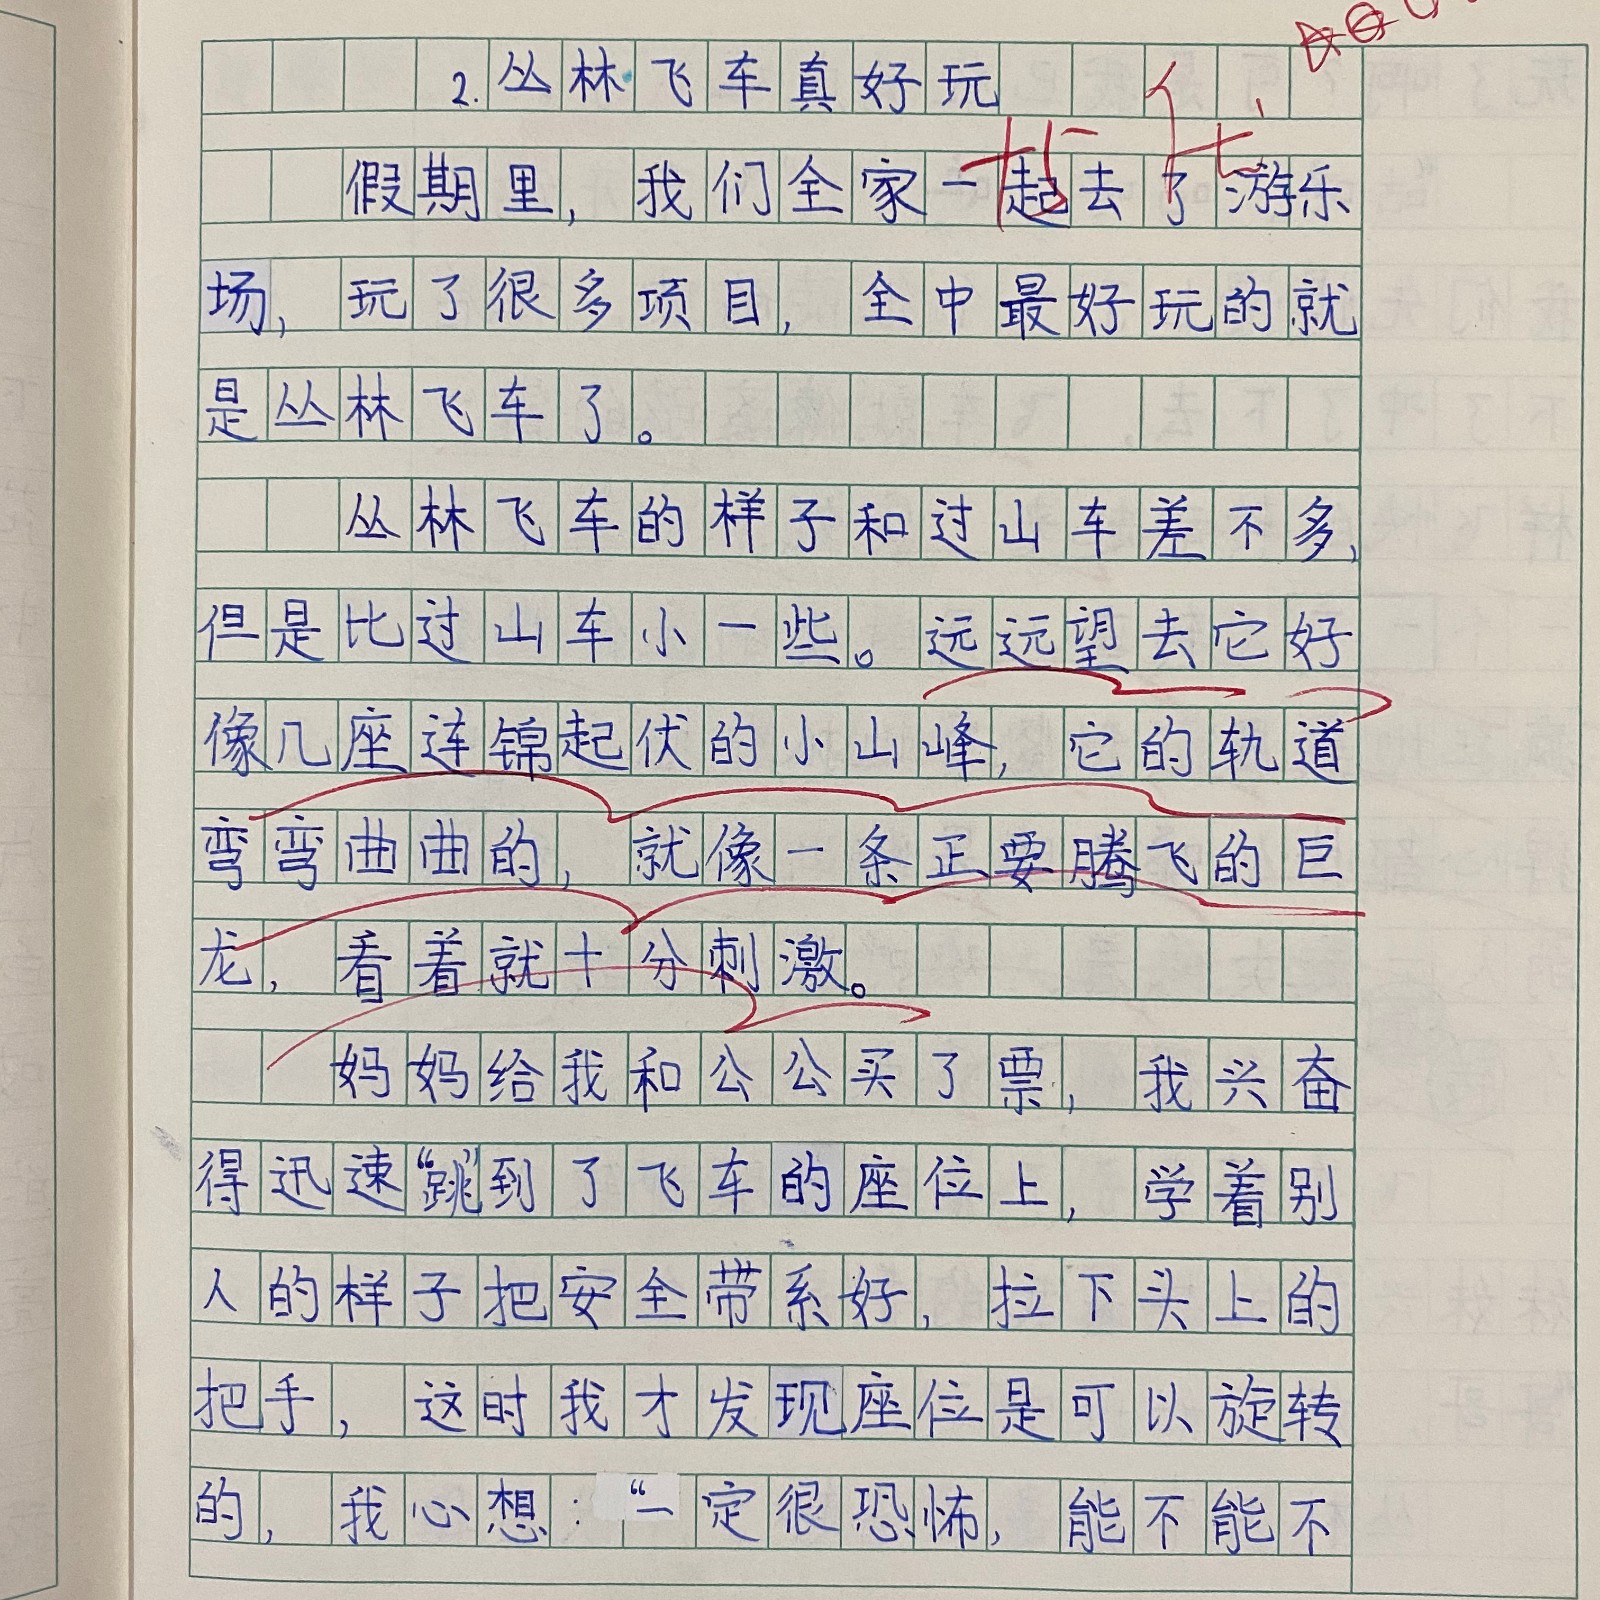 2.丛林飞车真好玩
假期里,我们全家一起去了游乐
场,玩了很多项目,全中最好玩的就
是丛林飞车了。
丛林飞车的样子和过山车差不多,
但是比过山车小一些。远远望去它好
像几座连锦起伏的小山峰,它的轨道
弯弯曲曲的,就像一条正要腾飞的巨
龙,看着就十分刺激。
妈妈给我和公公买了票,我兴奋
得迅速“跳”到了飞车的座位上,学着别
人的样子把安全带系好,拉下头上的
把手,这时我才发现座位是可以旋转
的,我心想:“一定很恐怖,能不能不